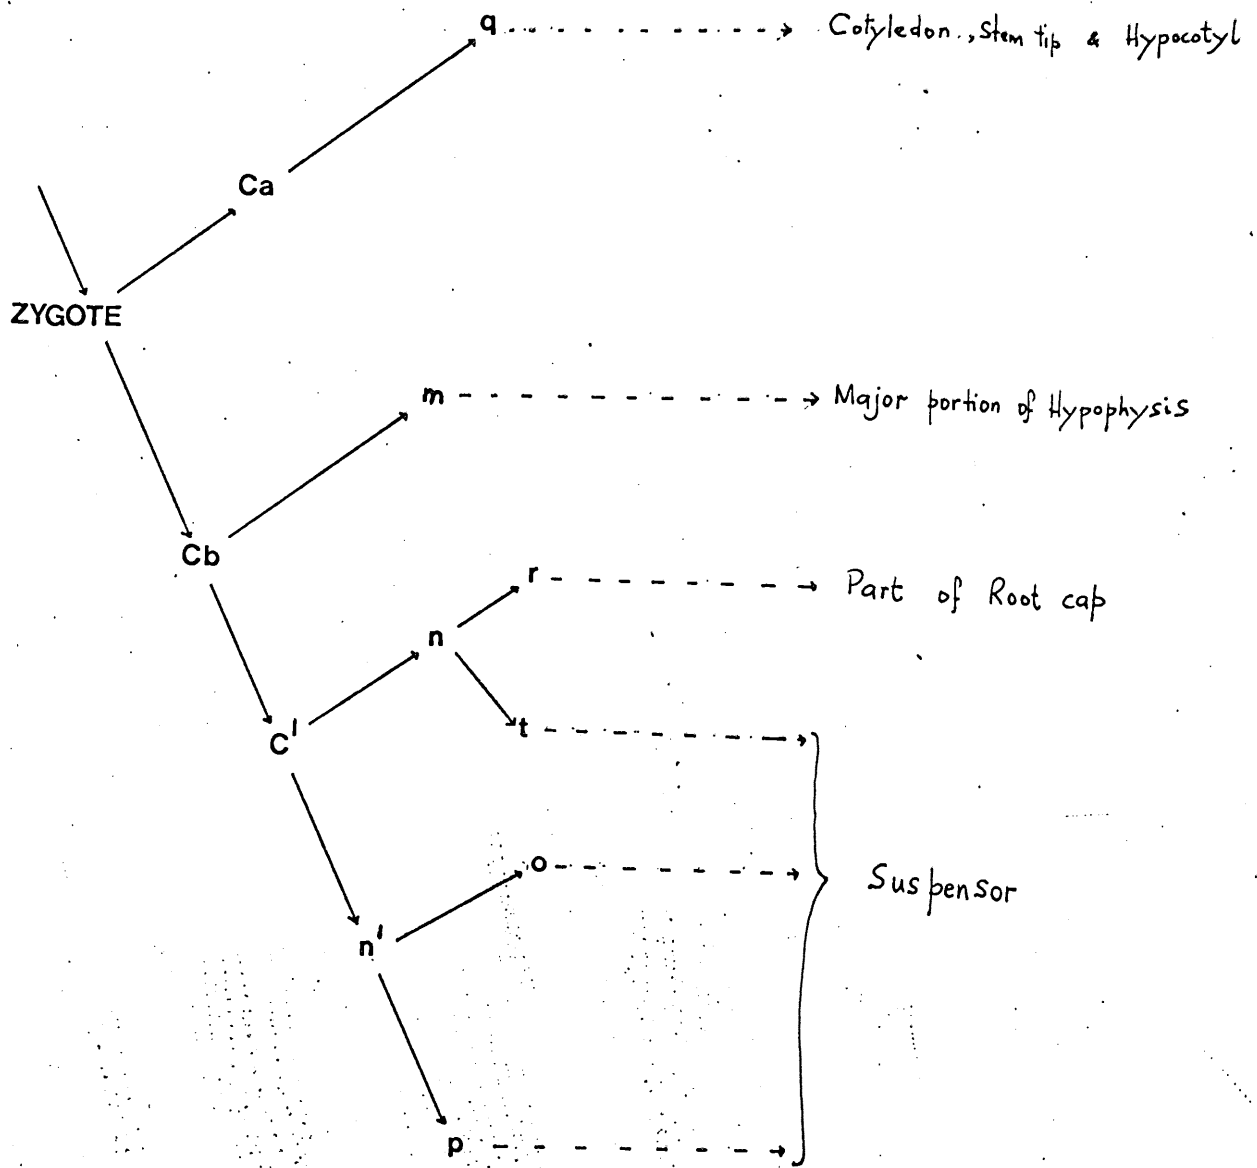 q Cotyledon., Stem tip & Hypocotyl
Ca
ZYGOTE
m Major portion of Hypophysis
Cb
r Part of Root cap
n
t
C'
o Suspensor
n'
p